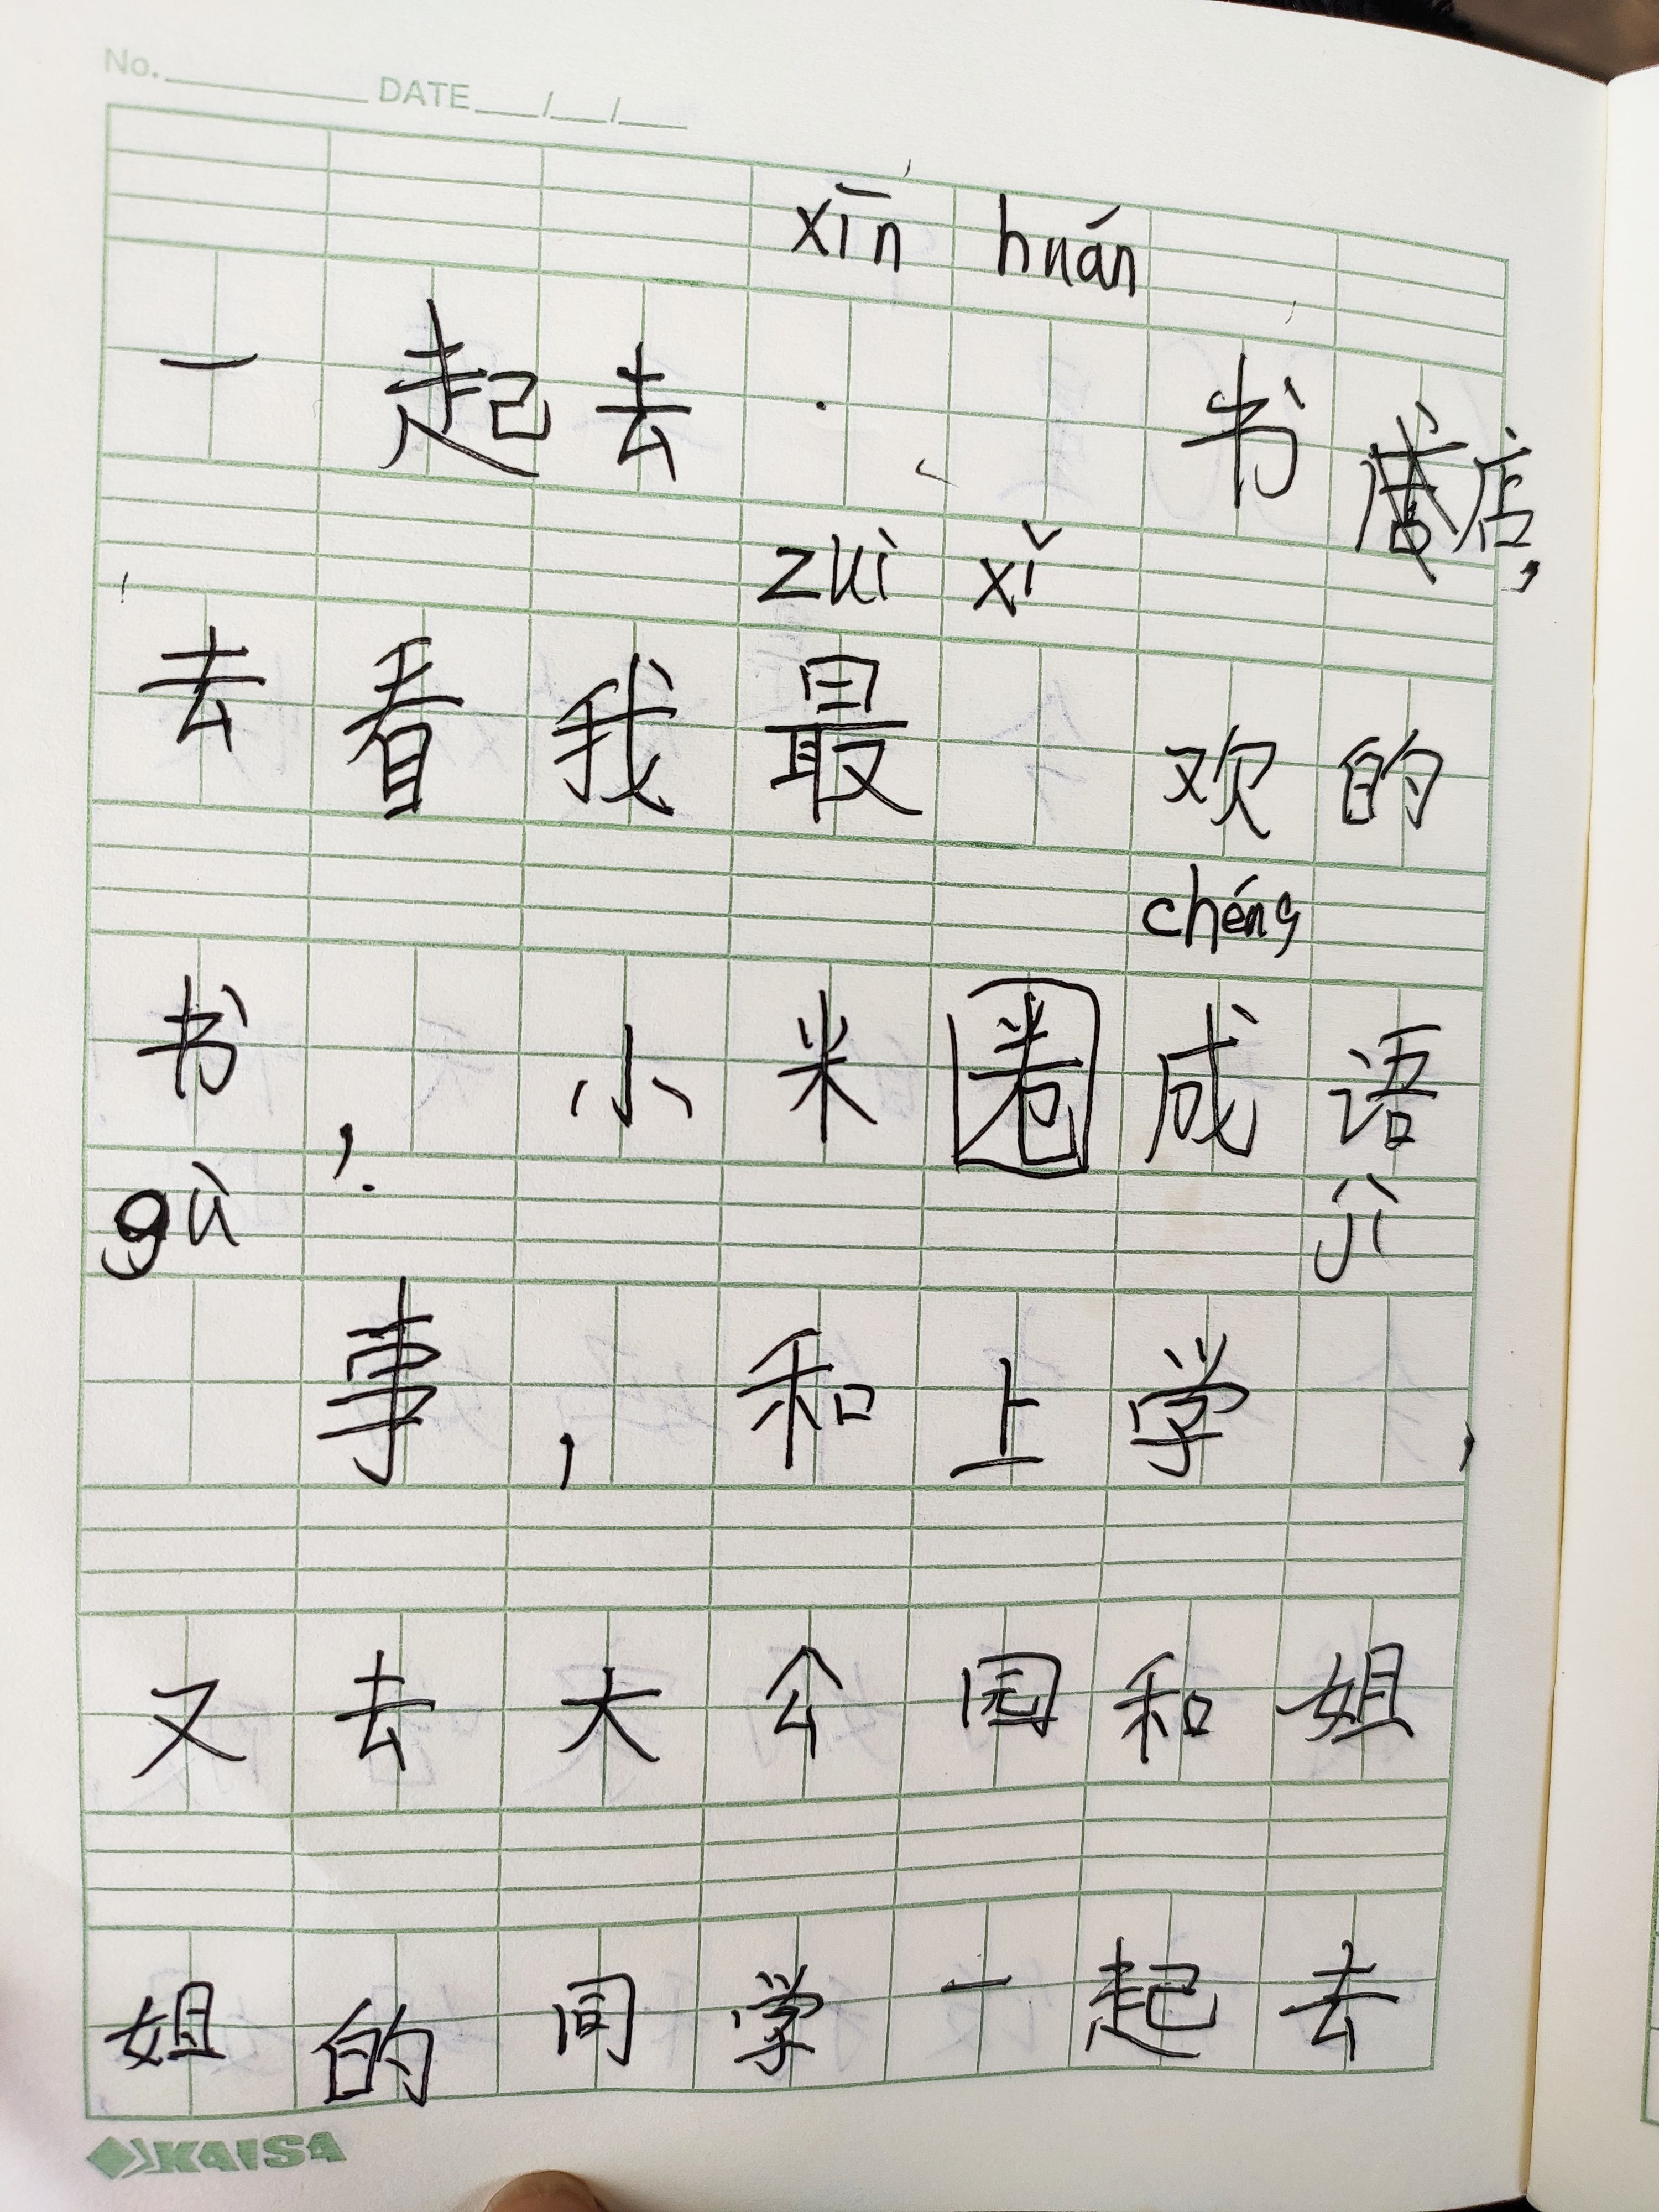 No. DATE / /
xīn huán
一起去书店，
zuì xǐ
去看我最欢的
chéng
书，小米圈成语
gù jì
事，和上学，
又去大公园和姐
姐的同学一起去
KAISA